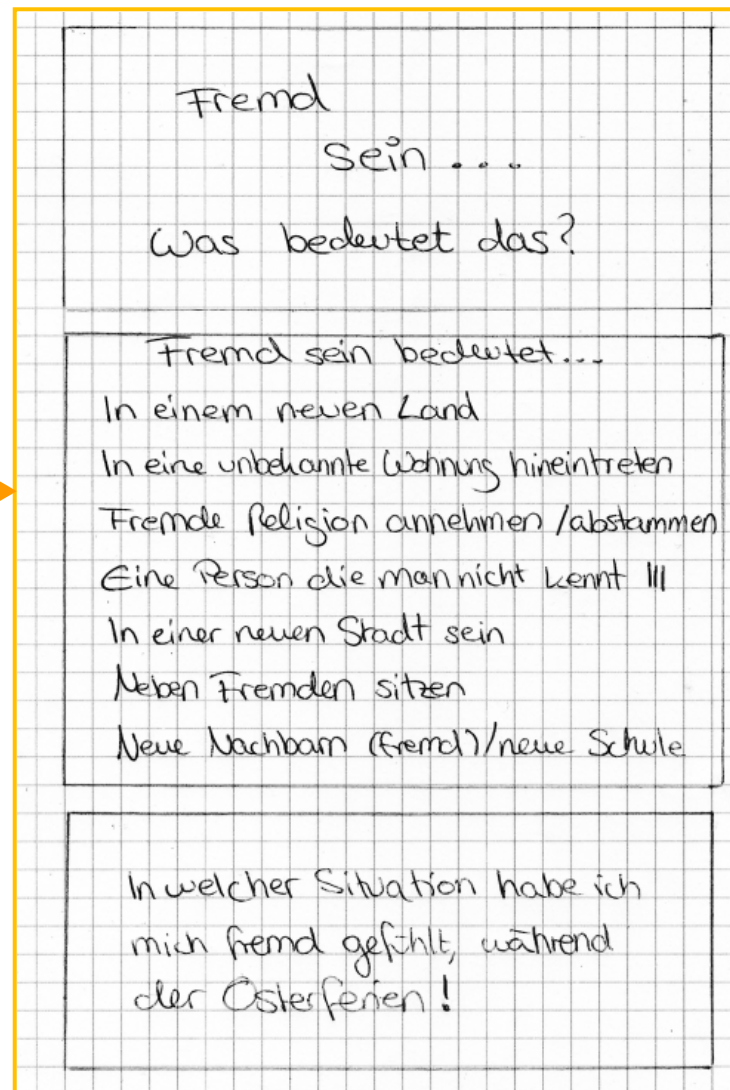 Fremd
sein ....
Was bedeutet das?
Fremd sein bedeutet...
In einem neuen Land
In eine unbekannte Wohnung hineintreten
Fremde Religion annehmen /abstammen
Eine Person die man nicht kennt III
In einer neuen Stadt sein
Neben Fremden sitzen
Neue Nachbarn (fremd)/neue Schule
In welcher Situation habe ich
mich fremd gefühlt, während
der Osterferien!